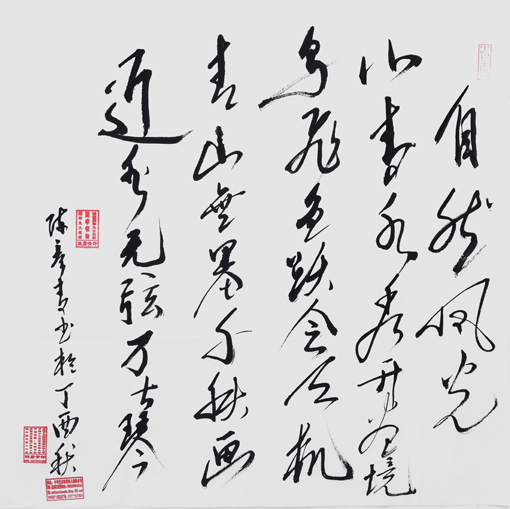 自然风光
山青水秀开境
鸟飞鱼跃会天机
青山無墨千秋画
近水无弦万古琴
陈彦青书於丁酉秋